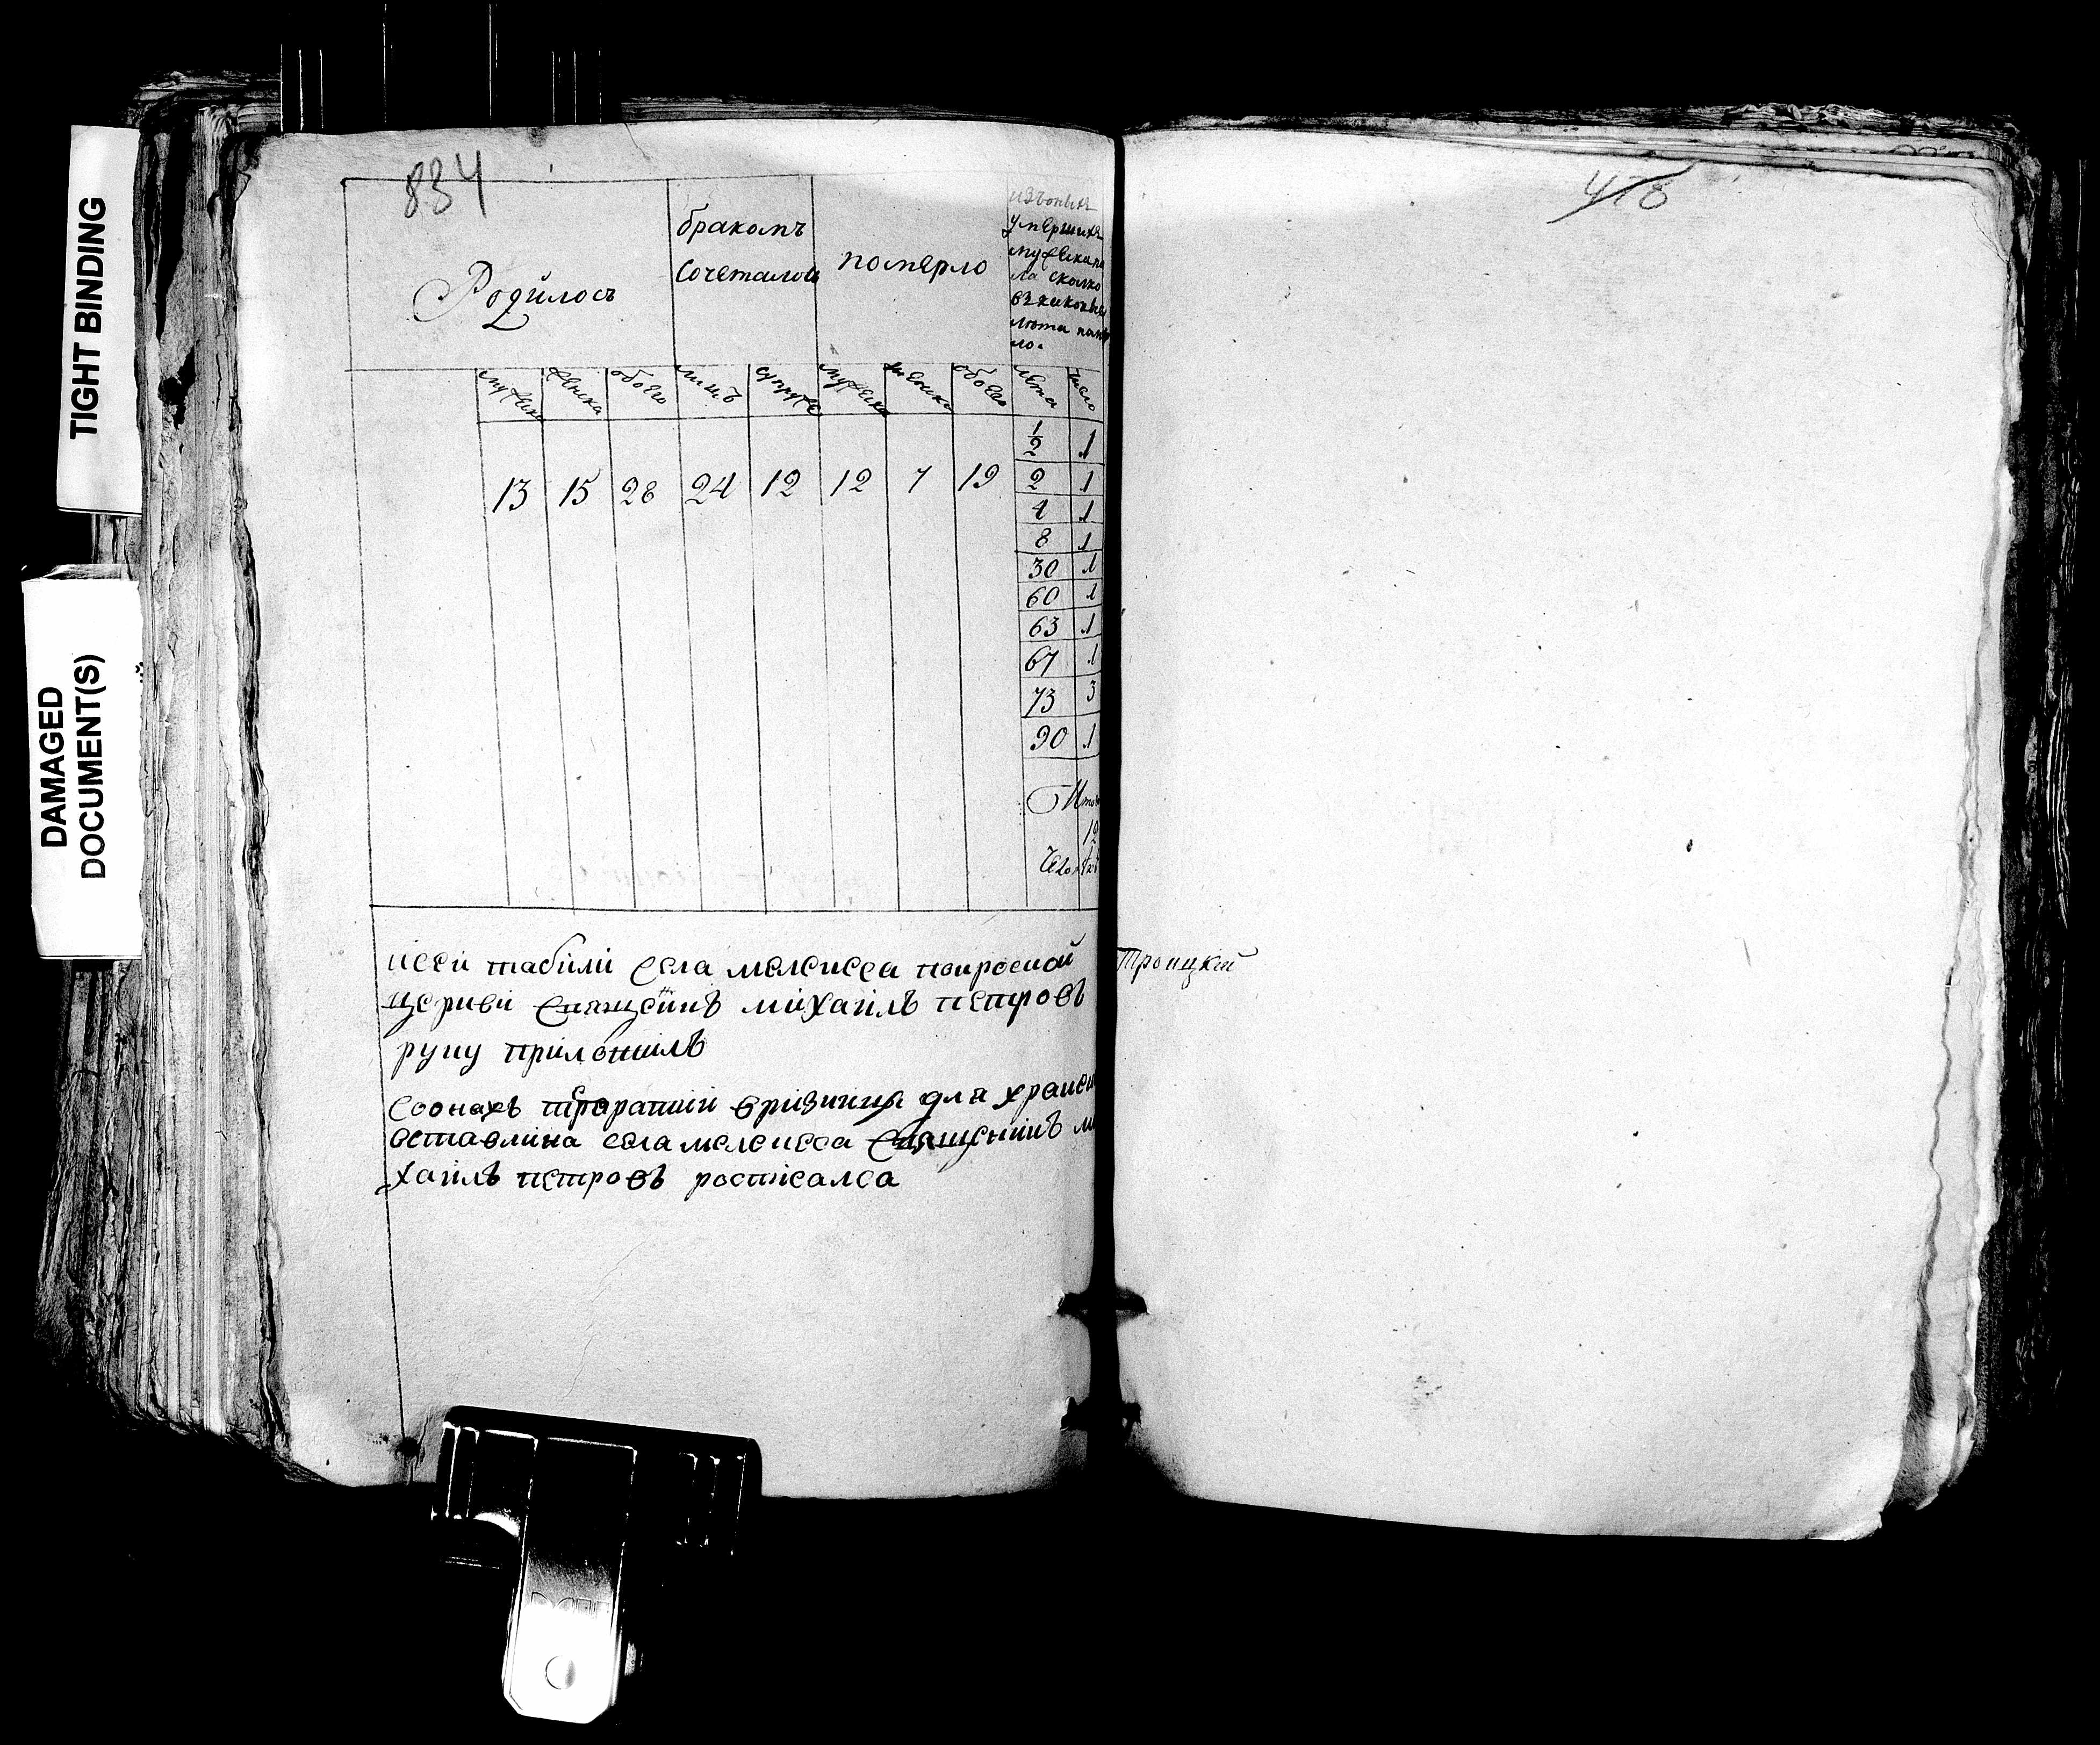 TIGHT BINDING
DAMAGED
DOCUMENT(S)
834
478
Родилось
бракомъ
сочеталось
померло
изъоныхъ
умершихъ
мужеска по
ла сколко
въ каковы
лѣта помер
ло.
мужеска женска обоего лицъ супругъ мужеска женска обоего лѣта число
13 15 28 24 12 12 7 19
1/2 1
2 1
4 1
8 1
30 1
60 1
63 1
67 1
73 3
90 1
Итого
12
Чело
ксей табели села мелекеса покровской
церкви священникъ михаилъ петровъ
руку приложилъ
троицкий
вризницы для хране
оставлина села мелекеса священникъ ми
хаилъ петровъ росписался